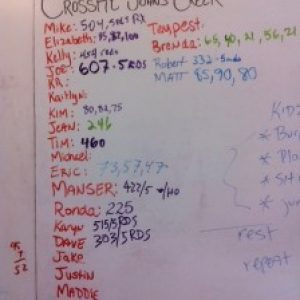 CROSSFIT JOHNS CREEK
Mike: 504, 5RDS RX
Elizabeth: 85,82,100
Kelly: 454 RDS
JOE: 607.5 RDS
KR:
Kaitlyn:
KIM: 80,82,75
JEAN: 246
TIM: 460
Michael:
ERIC: 73,57,47
MANSER: 422/5
Ronda: 225
Karyn 515/5RDS
DAVE 303/5RDS
Jake
JUSTIN
MADDIE
Tempest:
Brenda: 65, 40, 21, 56, 21
Robert 332 - 5rds
MATT 85, 90, 80
KIDZ
rest
repeat